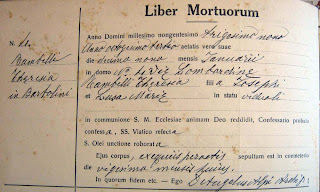 Liber Mortuorum
N. de
Rambelli
Theresia
in Bartolini
Anno Domini millesimo nongentesimo Trigesimo nono
Anno octogesimo tertio aetatis verae suae
die decimo nono mensis Januarii
in domo N. de Via Lombardine
Rambelli Theresia filia Josephi
et Luisa Maria in statu viduali
in communione S. M. Ecclesiae animam Deo reddidit, Confessario probato
confessa, SS. Viatico refecta
S. Olei unctione roborata
Ejus corpus, exequiis peractis sepultum est in coemeterio
die vigesima mensis hujus.
In quorum fidem etc. — Ego